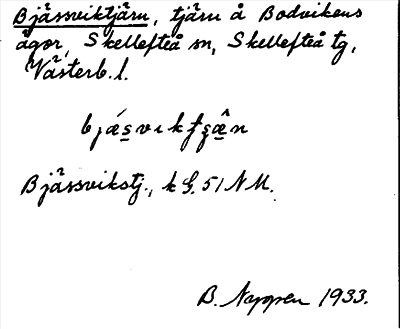 Bjässviktjärn, tjärn å Bodvikens
ägor, Skellefteå sn, Skellefteå tg,
Västerb. l.
Bjässvikstj., k G. 51 NM.
B. Nygren 1933.